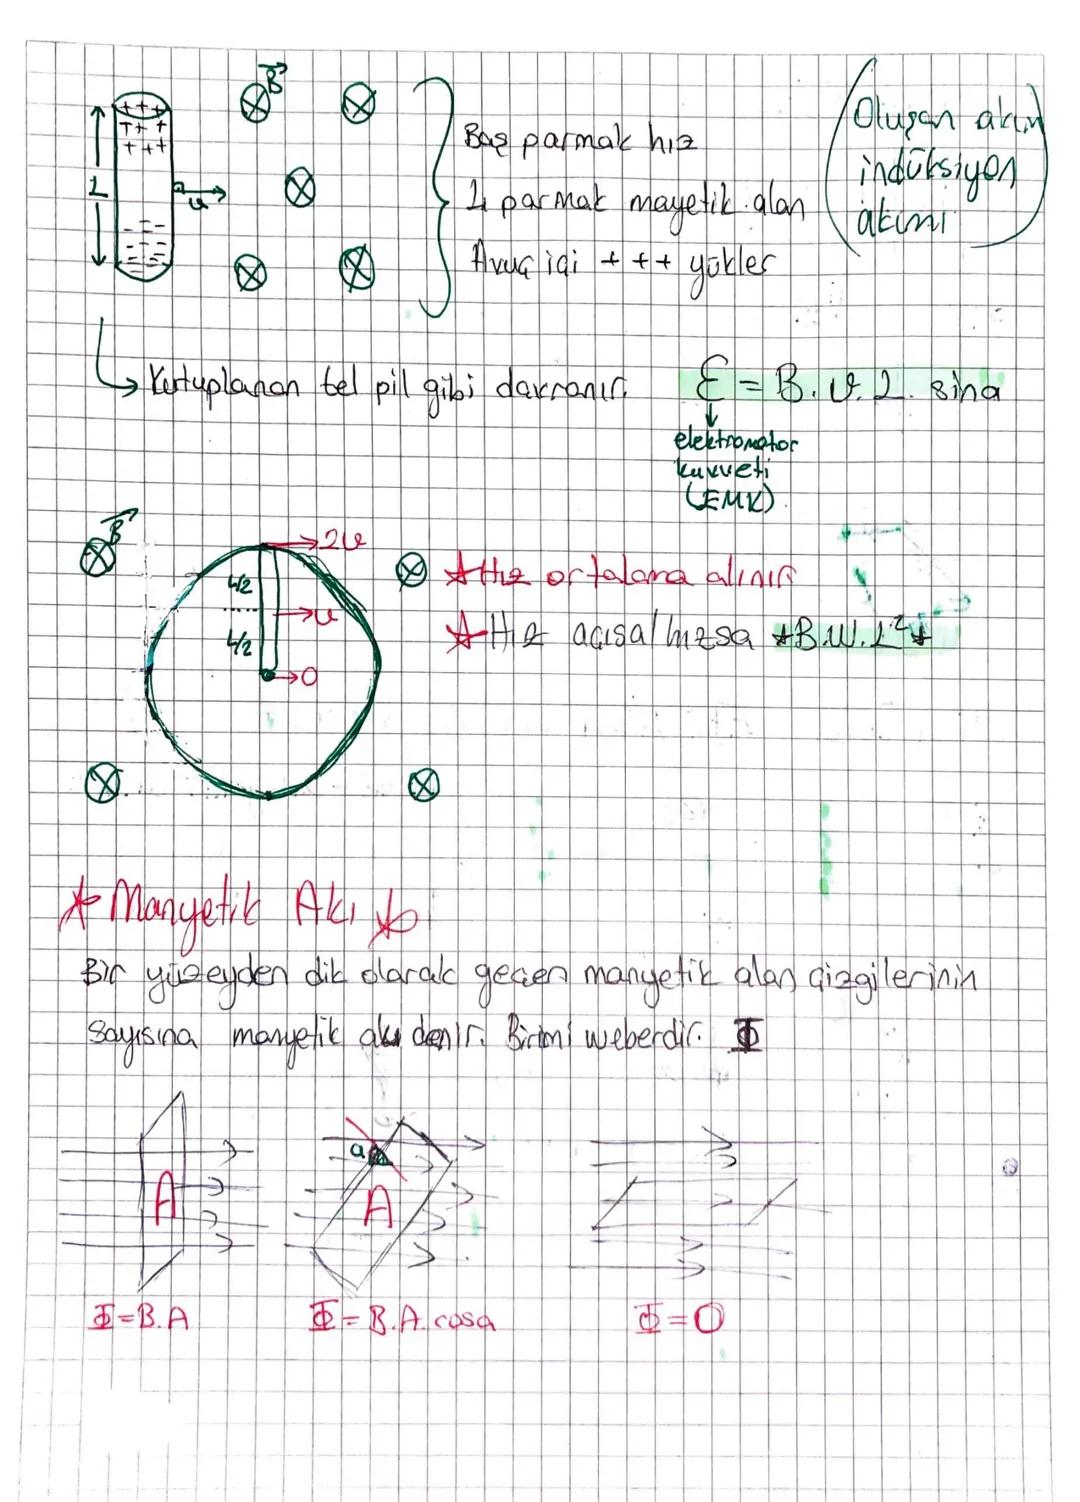 B
+++
+++
+++
L
v
Baş parmak hız
4 parmak mayetik alan
Avuç içi +++ yükler
Oluşan akım
indüksiyon
akımı
tel pil gibi davranır.
ε = B.v.L. sina
elektromotor
kuvveti
(EMK)
B
2v
L/2
v
L/2
0
Hız ortalama alınır
Hız açısal hızsa *B.W.L²*
Manyetik Akı
Bir yüzeyden dik olarak geçen manyetik alan çizgilerinin
sayısına manyetik akı denir. Birimi weberdir. Φ
A
a
A
Φ=B.A
Φ=B.A.cosa
Φ=0